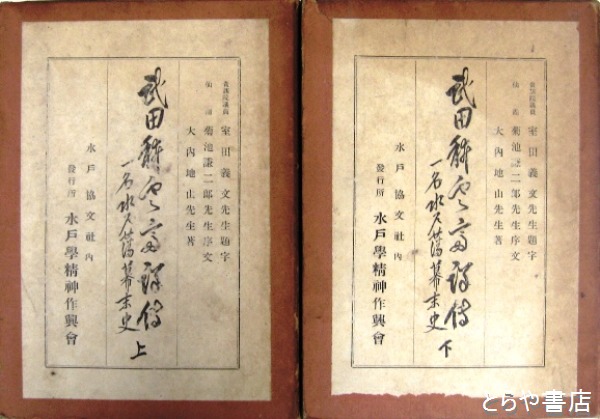 貴族院議員 室田義文先生題字
仙湖 菊池謙二郎先生序文
大內地山先生著
武田耕雲齋詳傳
一名水戸藩幕末史 上
水戸協文社內
發行所 水戸學精神作興會
貴族院議員 室田義文先生題字
仙湖 菊池謙二郎先生序文
大內地山先生著
武田耕雲齋詳傳
一名水戸藩幕末史 下
水戸協文社內
發行所 水戸學精神作興會
とらや書店